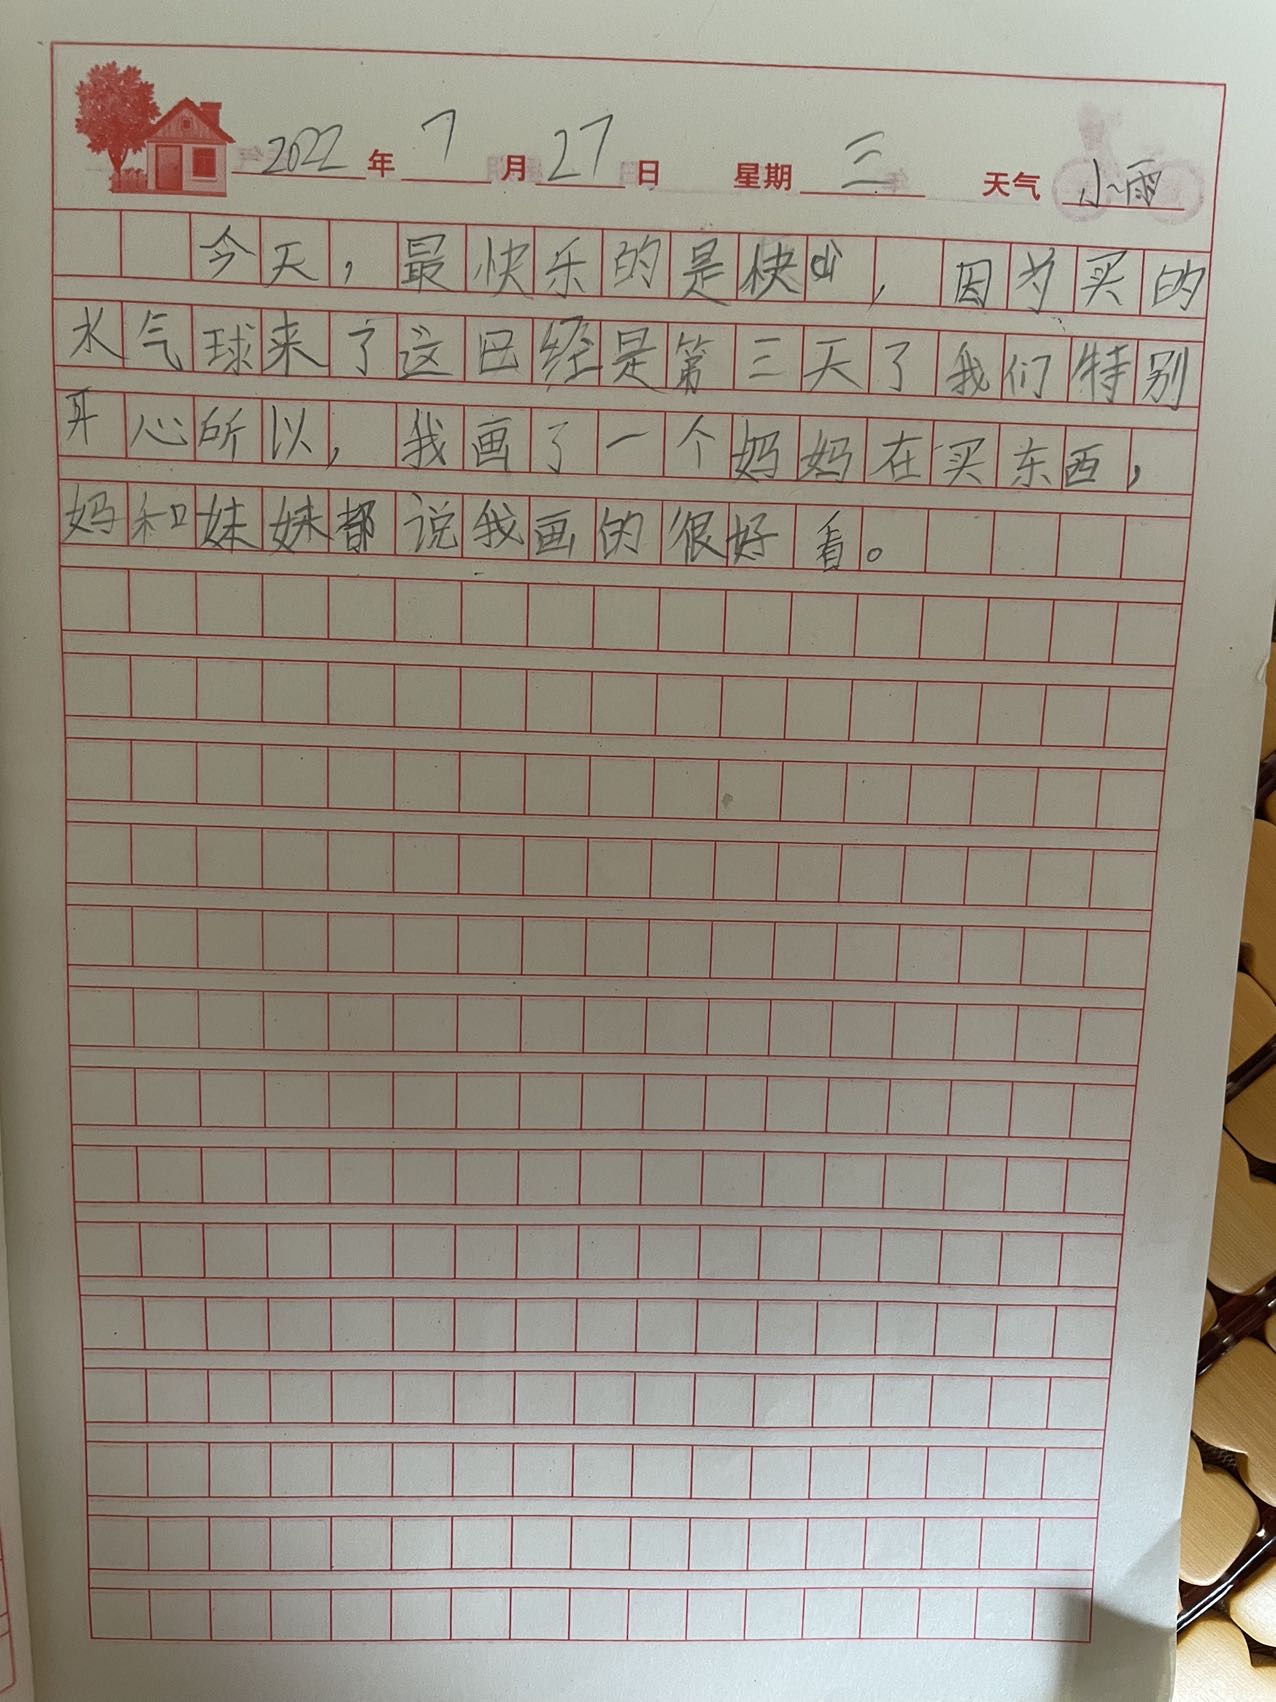 2022年7月27日 星期三 天气小雨
今天，最快乐的是快dì，因为买的
水气球来了这已经是第三天了我们特别
开心所以，我画了一个妈妈在买东西，
妈和妹妹都说我画的很好看。